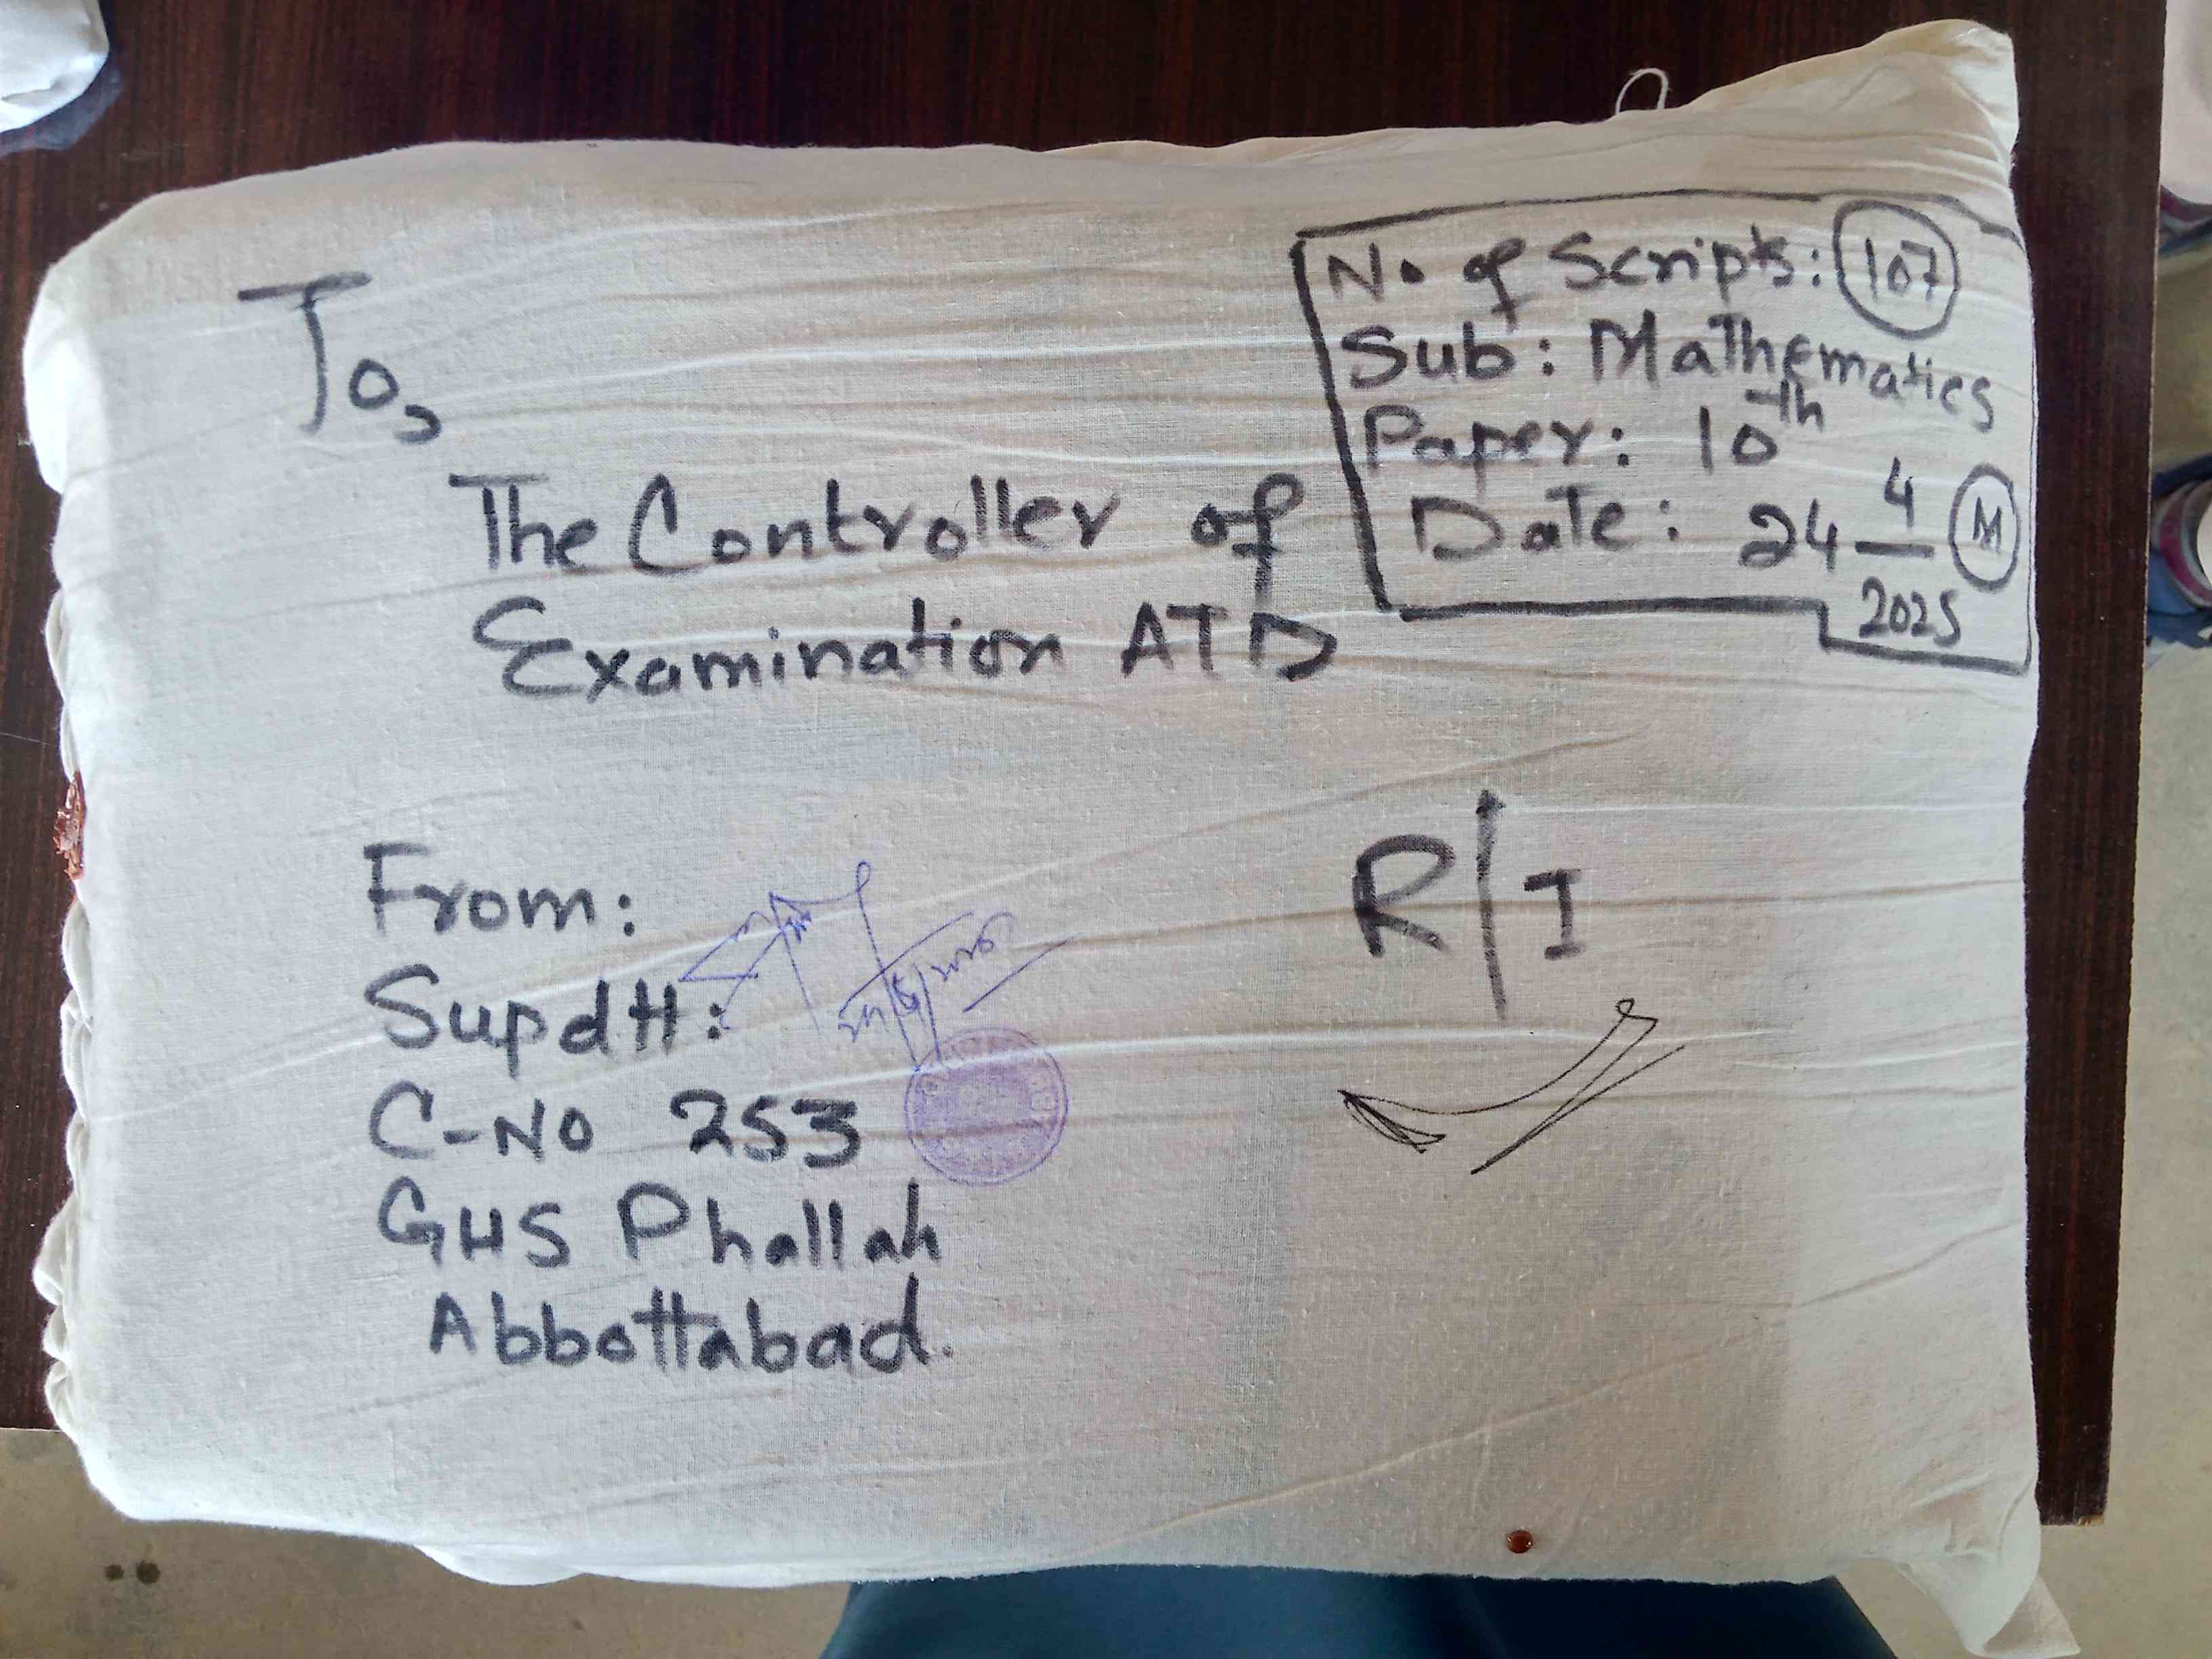 To,
The Controller of
Examination ATD
No. of Scripts: 107
Sub: Mathematics
Paper: 10th
Date: 24 4 M
2025
From:
Supdtt:
C-No 253
GHS Phallah
Abbottabad.
R/I